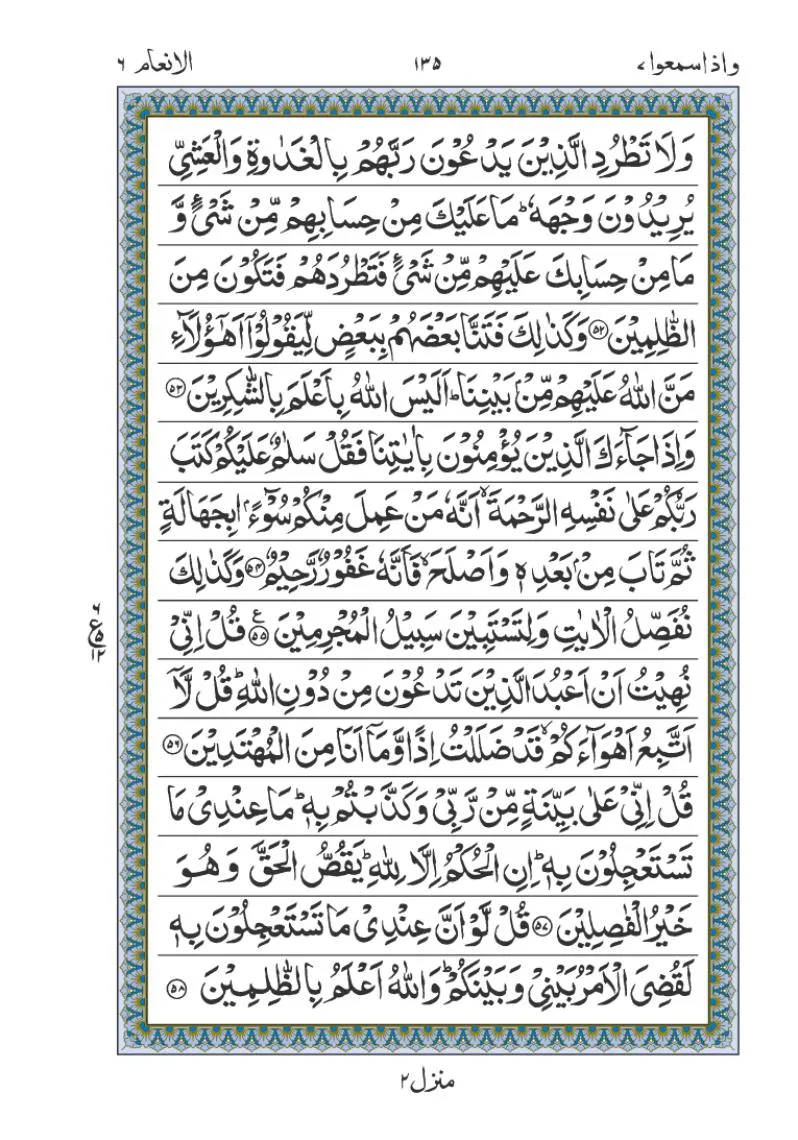 واذاسمعوا ٧ ١٣٥ الانعام ٦
وَلَا تَطْرُدِ الَّذِيْنَ يَدْعُوْنَ رَبَّهُمْ بِالْغَدٰوةِ وَالْعَشِيِّ
يُرِيْدُوْنَ وَجْهَهٗ ؕ مَا عَلَيْكَ مِنْ حِسَابِهِمْ مِّنْ شَيْءٍ وَّ
مَا مِنْ حِسَابِكَ عَلَيْهِمْ مِّنْ شَيْءٍ فَتَطْرُدَهُمْ فَتَكُوْنَ مِنَ
الظّٰلِمِيْنَ ﴿۵۲﴾ وَكَذٰلِكَ فَتَنَّا بَعْضَهُمْ بِبَعْضٍ لِّيَقُوْلُوْۤا اَهٰۤؤُلَآءِ
مَنَّ اللّٰهُ عَلَيْهِمْ مِّنْۢ بَيْنِنَا ؕ اَلَيْسَ اللّٰهُ بِاَعْلَمَ بِالشّٰكِرِيْنَ ﴿۵۳﴾
وَاِذَا جَآءَكَ الَّذِيْنَ يُؤْمِنُوْنَ بِاٰيٰتِنَا فَقُلْ سَلٰمٌ عَلَيْكُمْ كَتَبَ
رَبُّكُمْ عَلٰى نَفْسِهِ الرَّحْمَةَ ۙ اَنَّهٗ مَنْ عَمِلَ مِنْكُمْ سُوْٓءًۢا بِجَهَالَةٍ
ثُمَّ تَابَ مِنْۢ بَعْدِهٖ وَاَصْلَحَ ۙ فَاَنَّهٗ غَفُوْرٌ رَّحِيْمٌ ﴿۵۴﴾ وَكَذٰلِكَ
نُفَصِّلُ الْاٰيٰتِ وَلِتَسْتَبِيْنَ سَبِيْلُ الْمُجْرِمِيْنَ ﴿۵۵﴾ ع قُلْ اِنِّيْ
نُهِيْتُ اَنْ اَعْبُدَ الَّذِيْنَ تَدْعُوْنَ مِنْ دُوْنِ اللّٰهِ ؕ قُلْ لَّاۤ
اَتَّبِعُ اَهْوَآءَكُمْ ۙ قَدْ ضَلَلْتُ اِذًا وَّمَاۤ اَنَا مِنَ الْمُهْتَدِيْنَ ﴿۵۶﴾
قُلْ اِنِّيْ عَلٰى بَيِّنَةٍ مِّنْ رَّبِّيْ وَكَذَّبْتُمْ بِهٖ ؕ مَا عِنْدِيْ مَا
تَسْتَعْجِلُوْنَ بِهٖ ؕ اِنِ الْحُكْمُ اِلَّا لِلّٰهِ ؕ يَقُصُّ الْحَقَّ وَهُوَ
خَيْرُ الْفٰصِلِيْنَ ﴿۵۷﴾ قُلْ لَّوْ اَنَّ عِنْدِيْ مَا تَسْتَعْجِلُوْنَ بِهٖ
لَقُضِيَ الْاَمْرُ بَيْنِيْ وَبَيْنَكُمْ ؕ وَاللّٰهُ اَعْلَمُ بِالظّٰلِمِيْنَ ﴿۵۸﴾
منزل ٢